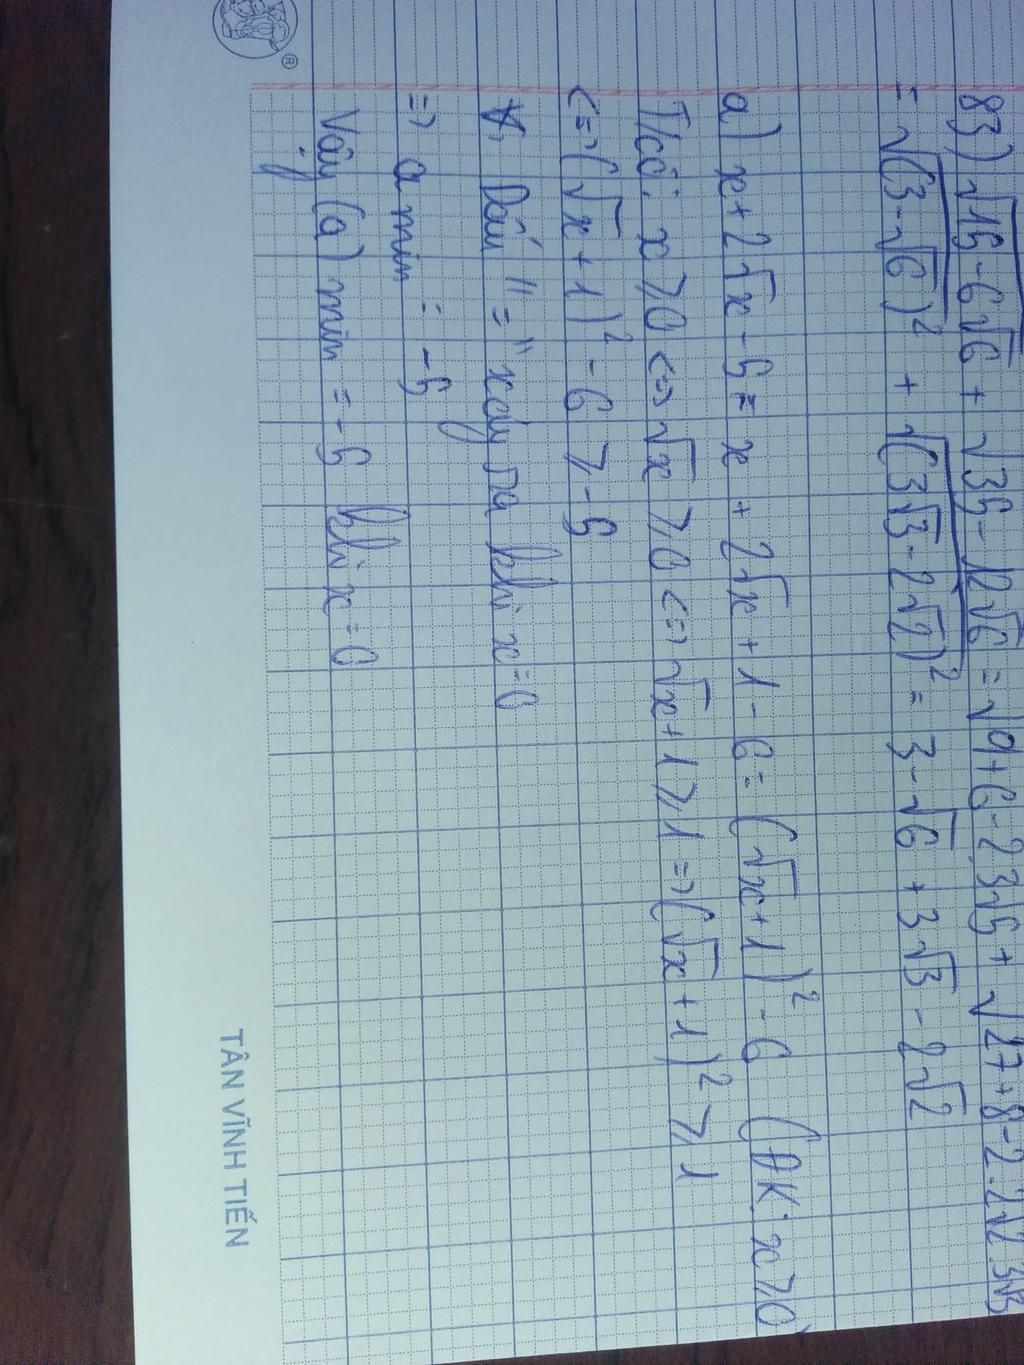 83) √15-6√6 + √35-12√6 = √9+6-2.3√6 + √27+8-2.2√2.3√3
= √(3-√6)² + √(3√3-2√2)² = 3-√6 + 3√3 - 2√2
a) x+2√x-5 = x + 2√x + 1 - 6 = (√x+1)² - 6 (ĐK: x⩾0)
T/có: x ⩾0 <=> √x ⩾0 <=> √x+1 ⩾1 => (√x+1)² ⩾1
<=> (√x+1)² - 6 ⩾ -5
Dấu "=" xảy ra khi x=0
=> a min = -5
Vậy (a) min = -5 khi x=0
®
TÂN VĨNH TIẾN